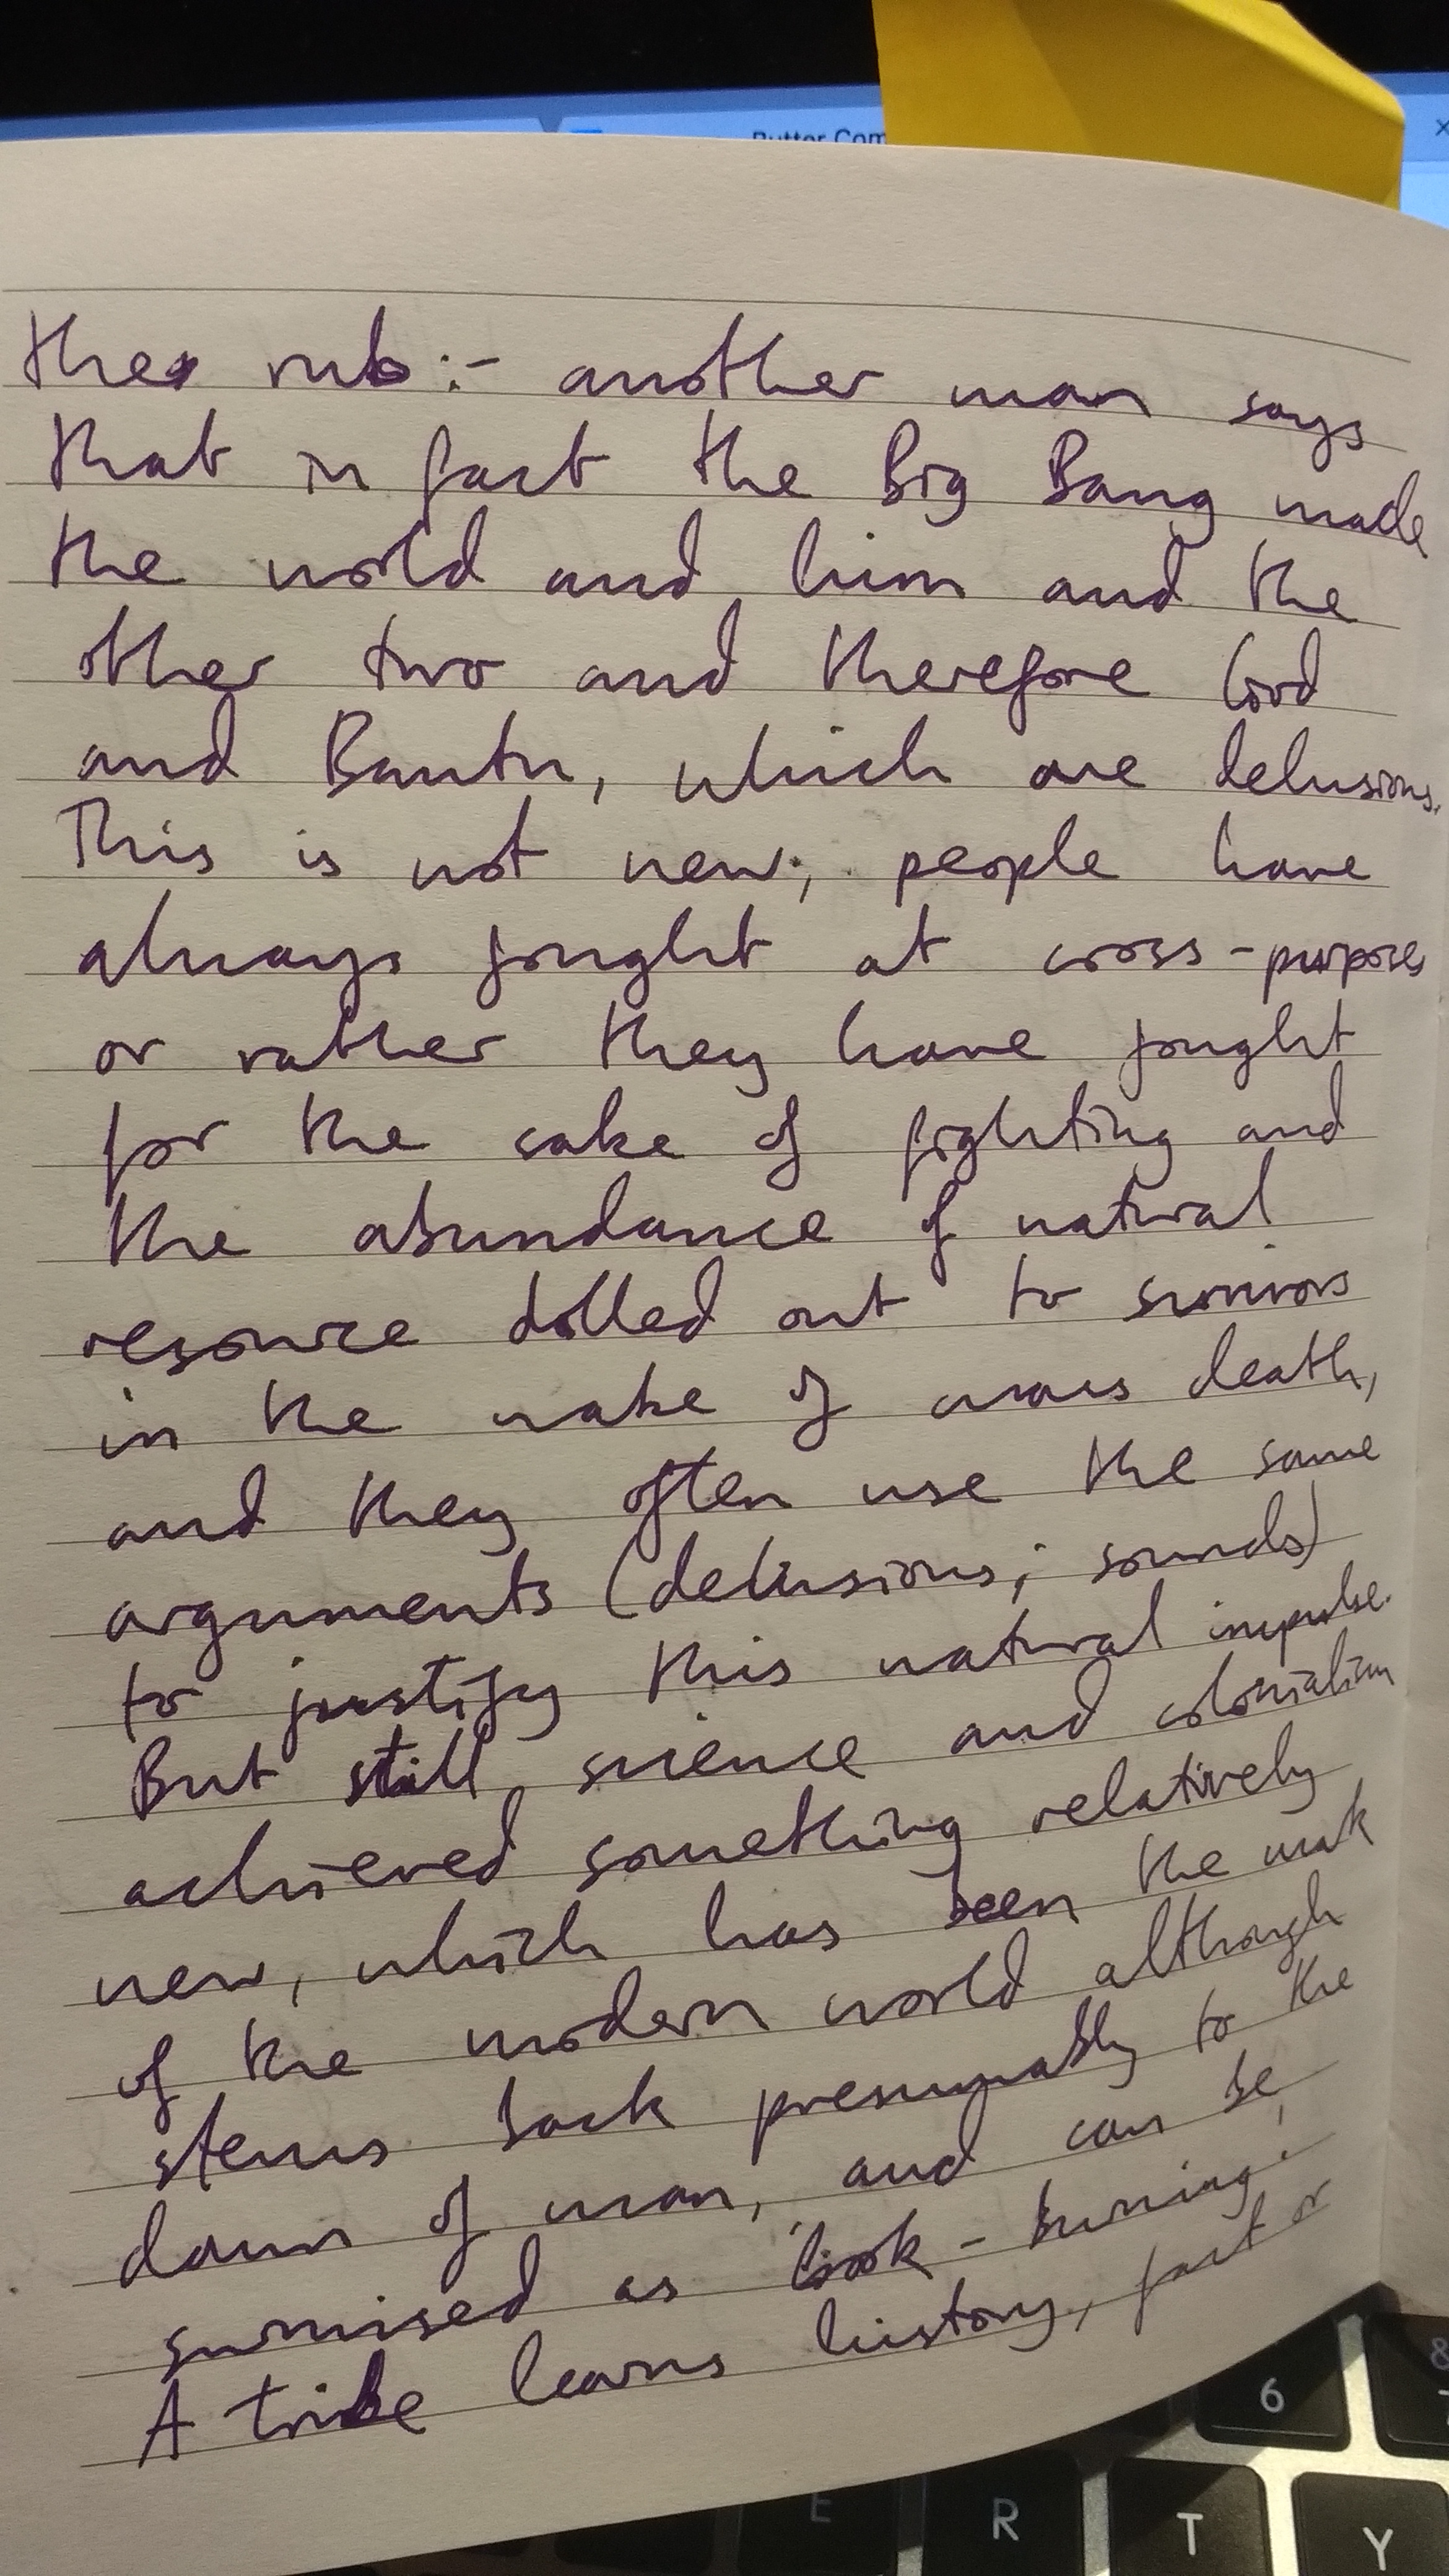 Butter Com
the rub:- another man says
that in fact the Big Bang made
the world and him and the
other two and therefore God
and Bantu, which are delusions.
This is not new; people have
always fought at cross-purposes
or rather they have fought
for the sake of fighting and
the abundance of natural
resource dolled out to survivors
in the wake of mass death,
and they often use the same
arguments (delusions; sounds)
to justify this natural impulse.
But still science and colonialism
achieved something relatively
new, which has been the mark
of the modern world although
stems back presumably to the
dawn of man, and can be
surmised as 'book-burning'.
A tribe learns history, fact or
6
&
7
E
R
T
Y